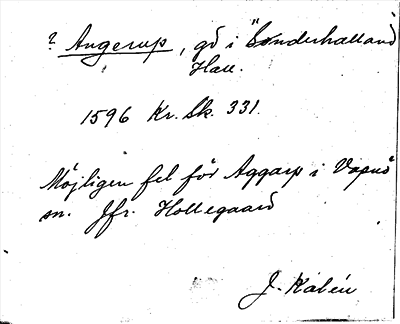 ? Angerup, gd i "Sonderhalland
Hall.
1596 Kr. Sk. 331.
Möjligen fel för Aggarp i Vapnö
sn. Jfr. Hollegaard
J. Kalén